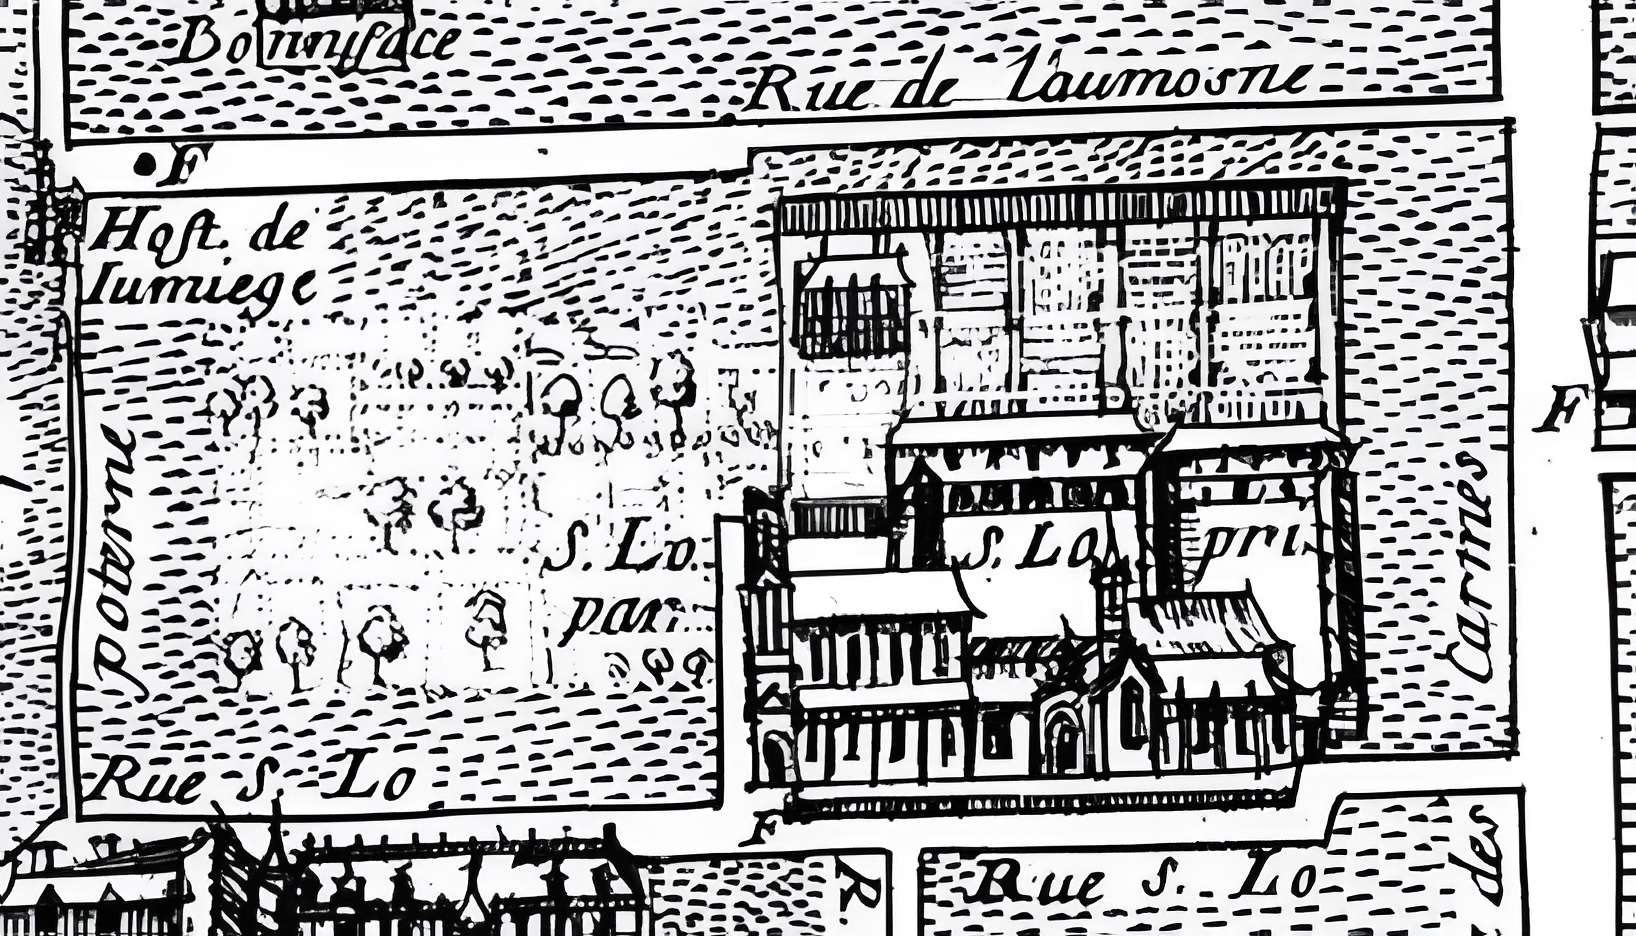 Bonniface
Rue de l'aumosne
F
Host. de
Iumiege
F
poterne
Carmes
S. Lo.
par.
S. Lo pri.
Rue S. Lo
F
R.
Rue S. Lo
des